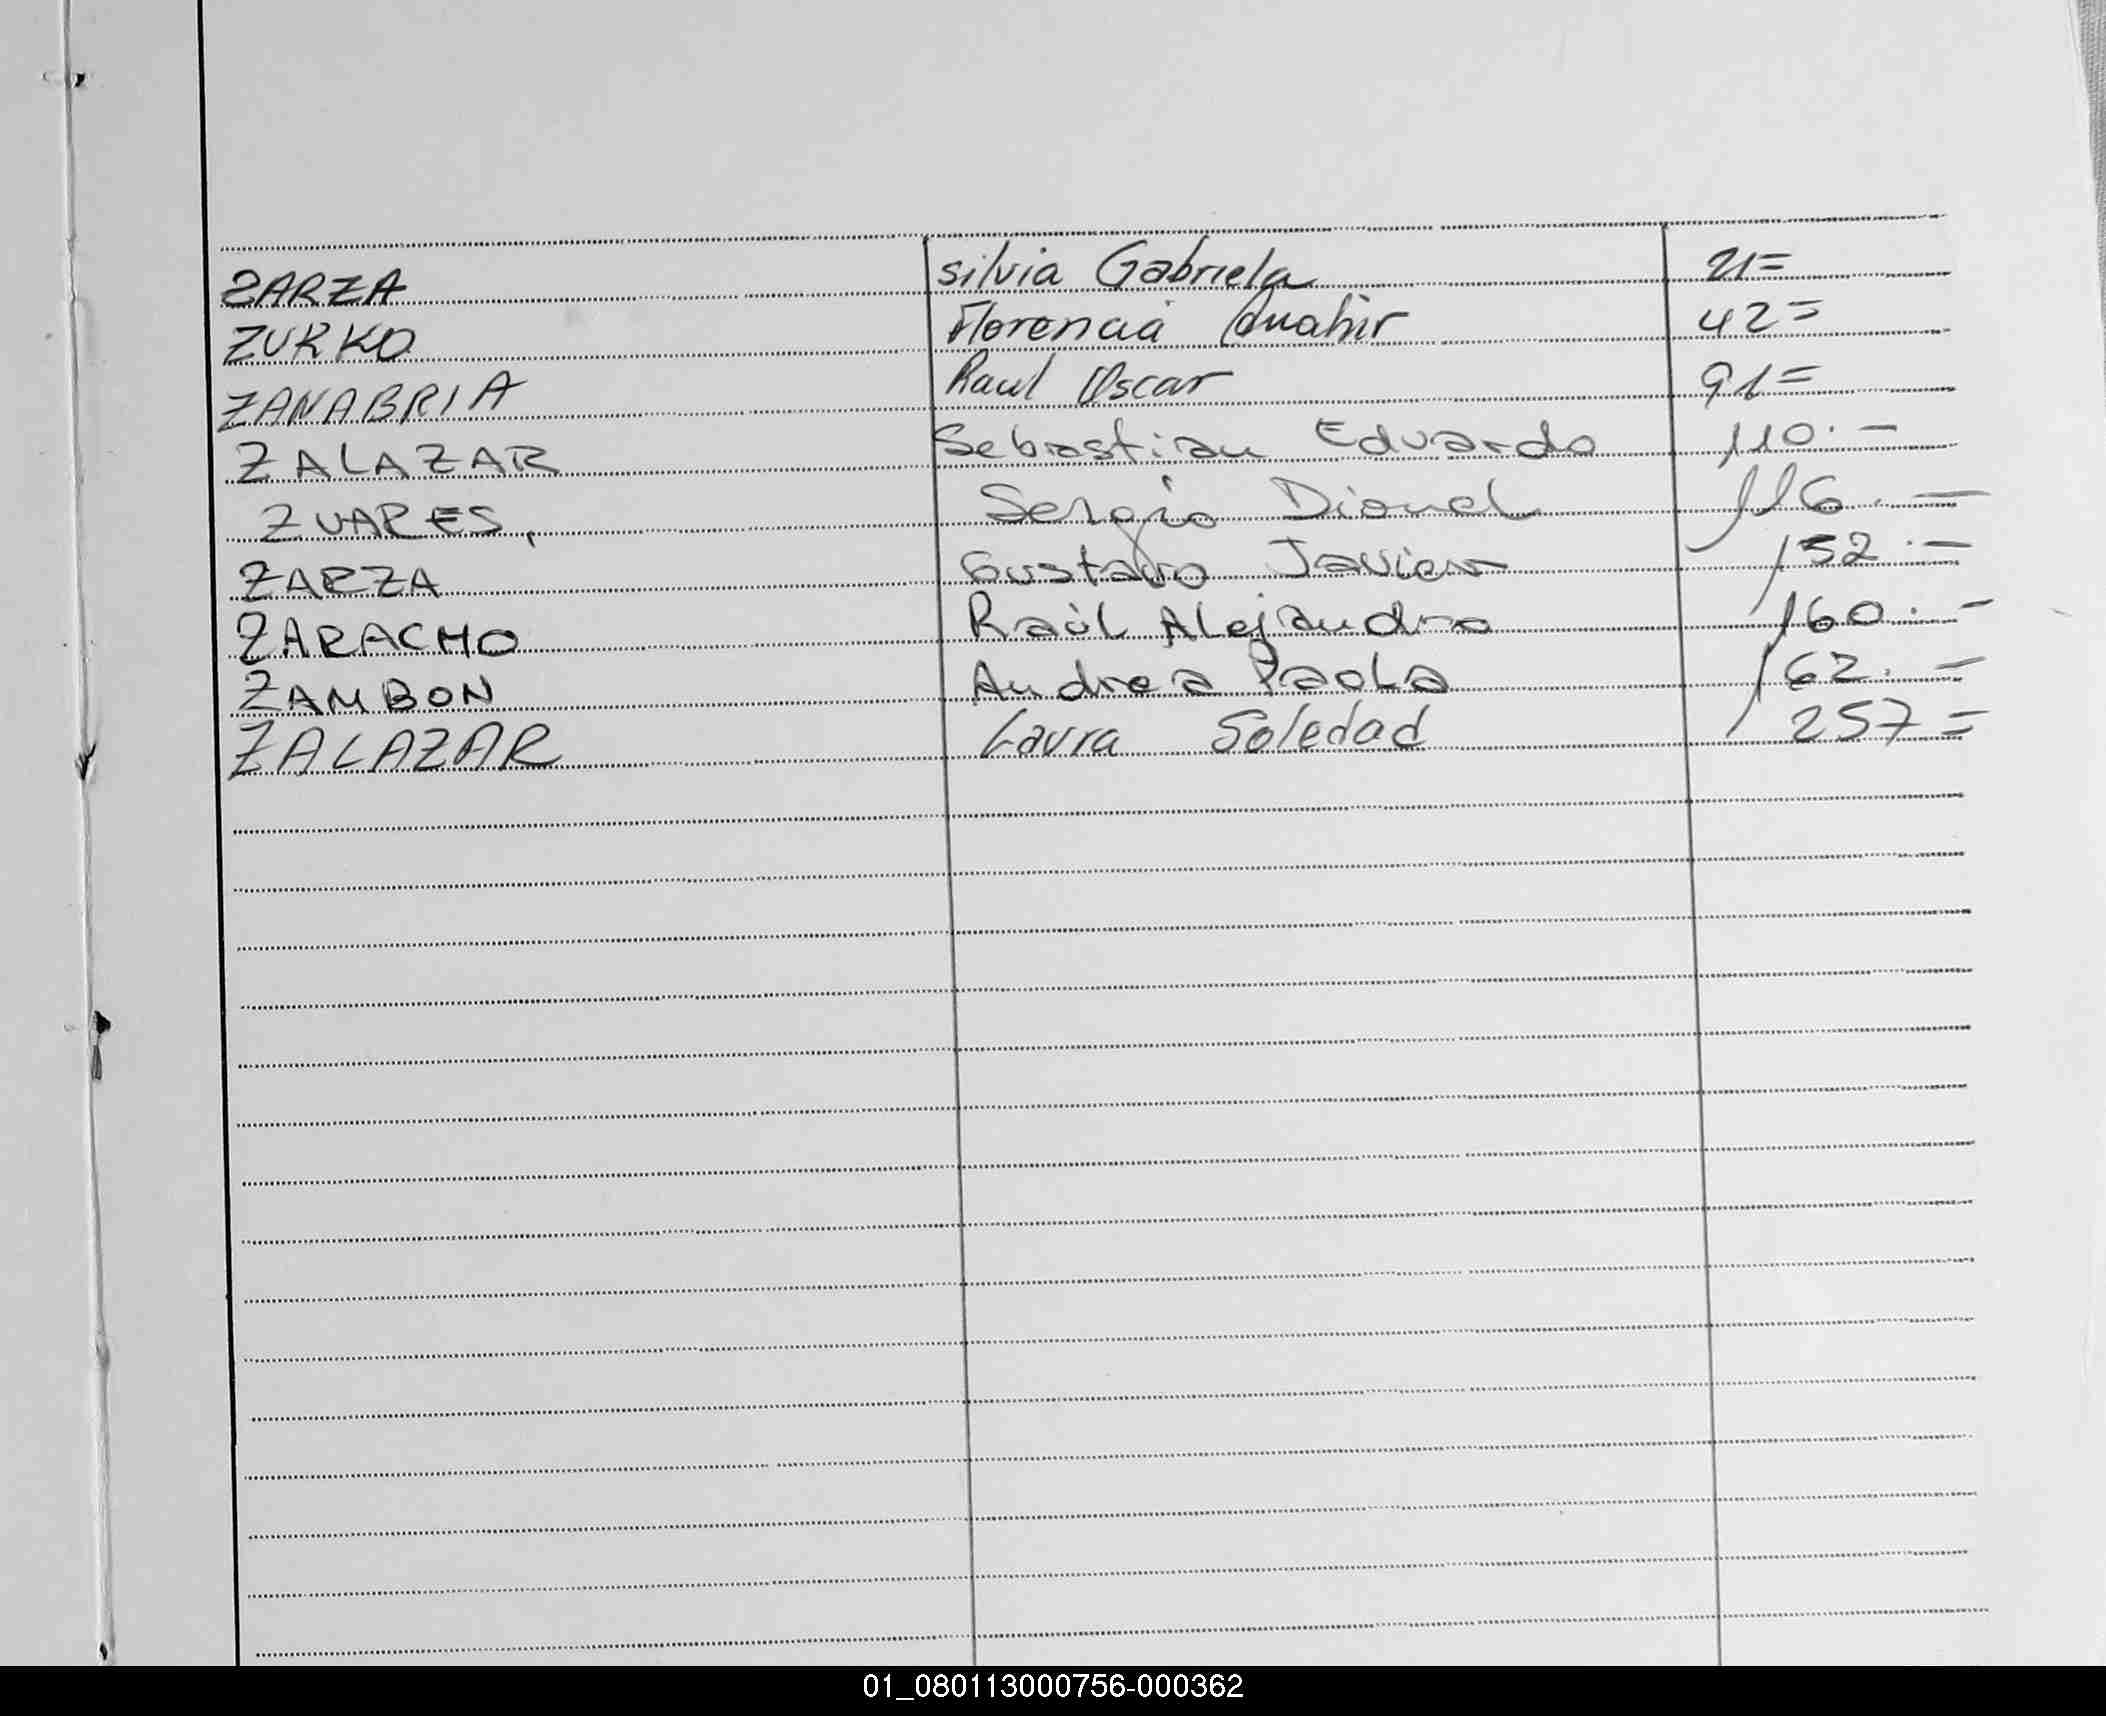 ZARZA silvia Gabriela 21=
ZURKO Florencia 42=
ZANABRIA Raul Oscar 91=
ZALAZAR Sebastian Eduardo 110.-
ZUARES, Sergio Dionel 116.-
ZARZA Gustavo Javier 152.-
ZARACHO Raúl Alejandro 160.-
ZAMBON Andrea Paola 162.-
ZALAZAR Laura Soledad 257=
01_080113000756-000362